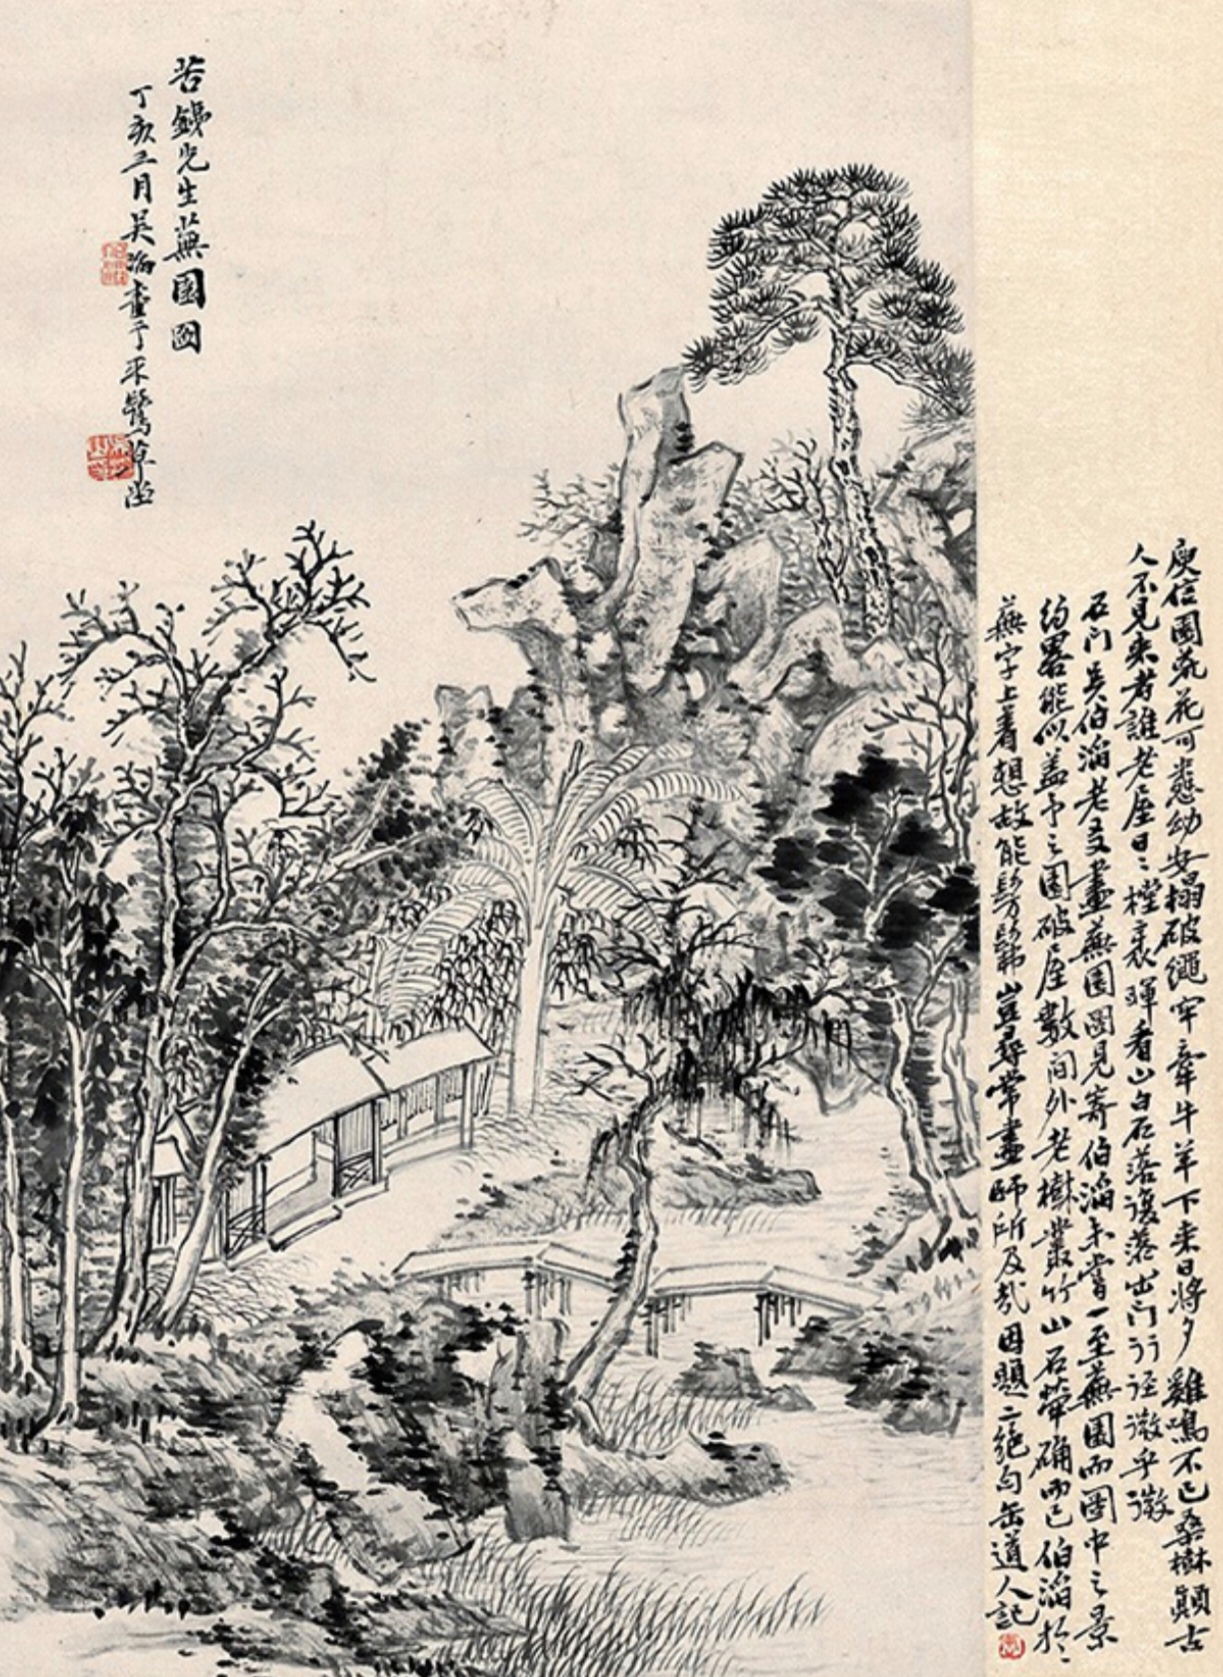 庾信園荒花可愁幼安榻破繩牢牽牛羊下来日將夕雞鳴不已桑樹顛古
人不見来者誰老屋日:檉衣暉看山白石落復落出門行徑微乎微
石門吴伯滔老友畫蕪園圖見寄伯滔未嘗一至蕪園而圖中之景
約畧能似蓋予之園破屋數間外老樹叢竹山石犖确而已伯滔於
蕪字上着想故能髣髴豈尋常畫師所及哉因題二絶句缶道人記
苦鐵先生蕪園圖
丁亥三月吴滔畫于来鷺草堂